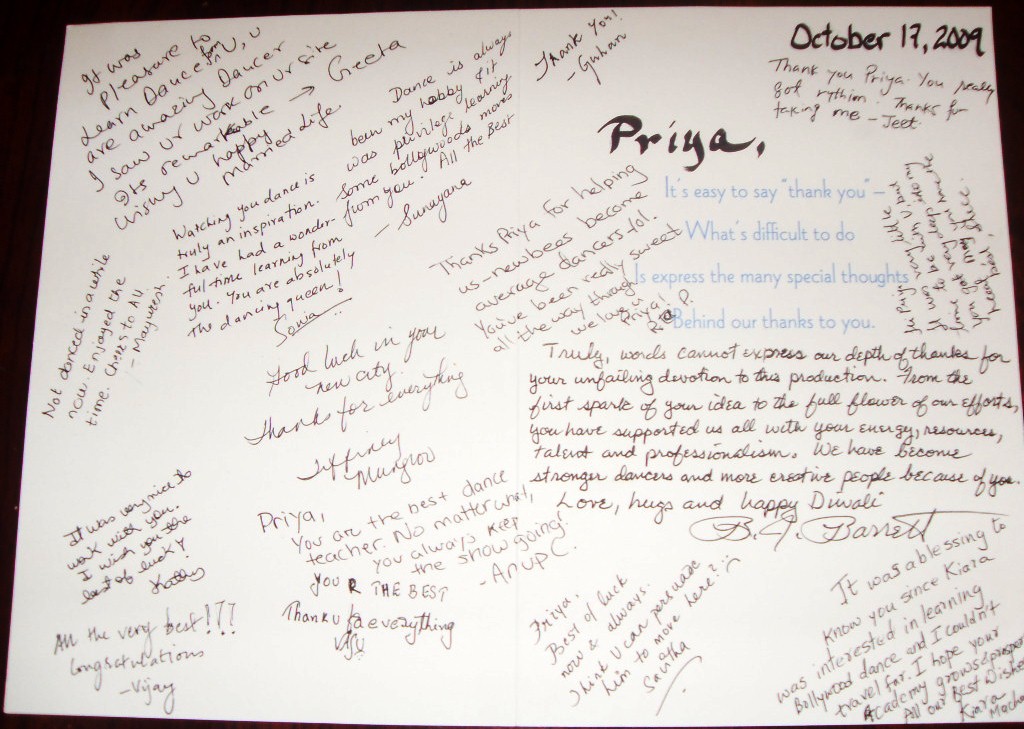 It was
pleasure to
Learn Dance from U, u
are amazing Dancer
I saw ur work on ur site
Its remarkable → Geeta
wishy u happy
Married Life
Dance is always
been my hobby & it
was privilege learning
some bollywoods moves
from you! All the Best
- Sunayana
Watching you dance is
truly an inspiration.
I have had a wonder-
ful time learning from
you. You are absolutely
The dancing queen!
Sonia
Not danced in a while
now. Enjoyed the
time. Cheers to All
- Mayuresh
Good luck in your
new city.
Thanks for everything
Tiffiney
Mungroo
It was very nice to
work with you.
I wish you the
best of luck!
Kathy
Priya,
You are the best dance
teacher. No matter what,
you always keep
the show going!
- Anup C.
YOU R THE BEST
Thank u for everything
All the very best!!!
Congratulations
- Vijay
Thank You!
- Guhan
October 17, 2009
Thank you Priya. You really
got rythim! Thanks for
taking me - Jeet.
Priya,
It's easy to say "thank you" –
What's difficult to do
Is express the many special thoughts
Behind our thanks to you.
Thanks Priya for helping
us - newbees become
average dancers lol.
You've been really sweet
all the way through
we love u
Priya!
P.
Truly, words cannot express our depth of thanks for
your unfailing devotion to this production. From the
first spark of your idea to the full flower of our efforts,
you have supported us all with your energy, resources,
talent and professionalism. We have become
stronger dancers and more creative people because of you.
Love, hugs and happy Diwali
B.J. Barrett
Priya,
Best of luck
now & always.
Think u can persuade
him to move here? :)
Savitha
It was a blessing to
know you since Kiara
was interested in learning
Bollywood dance and I couldn't
travel far. I hope your
Academy grows & prosper
All our Best Wishes
Kiara